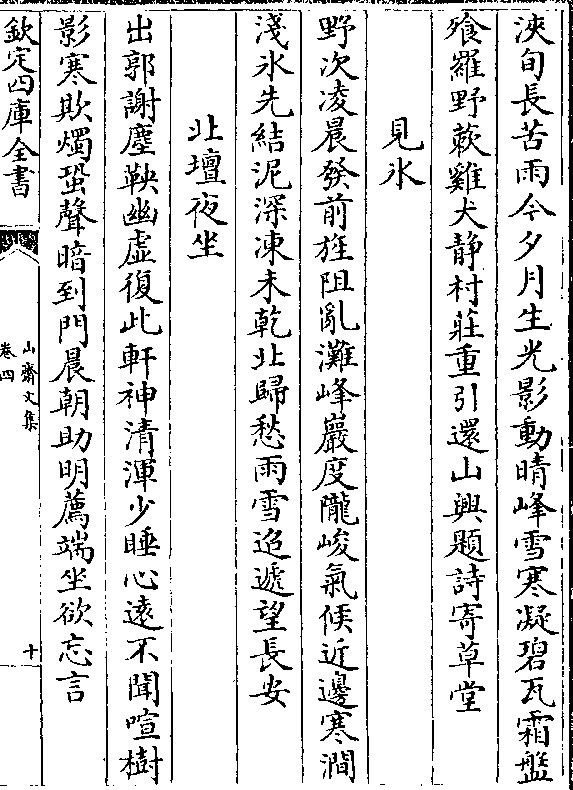 浹旬長苦雨今夕月生光影動晴峰雪寒凝碧瓦霜盤
飱羅野蔌雞犬静村莊重引還山興題詩寄草堂
見氷
野次凌晨發前旌阻亂灘峰巖度隴峻氣候近邊寒澗
淺氷先結泥深凍未乾北歸愁雨雪迢遞望長安
北壇夜坐
出郭謝塵鞅幽虛復此軒神清渾少睡心逺不聞喧樹
影寒欺燭蛩聲暗到門晨朝助明薦端坐欲忘言
欽定四庫全書
山齋文集
卷四
十